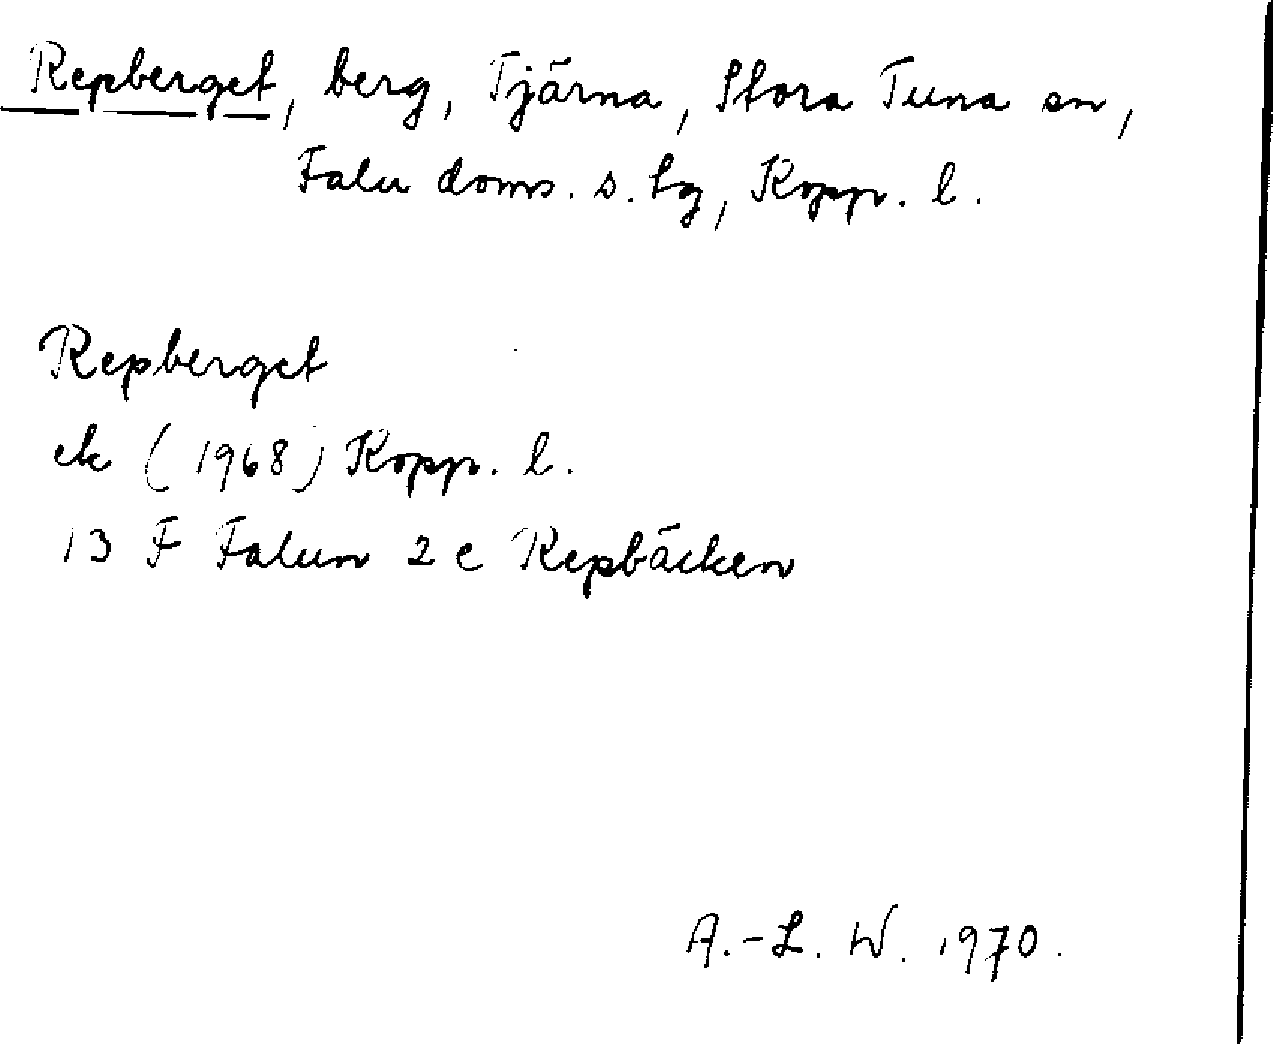 Repberget, berg, Tjärna, Stora Tuna sn,
Falu doms. s. tg, Kopp. l.
Repberget
ek (1968) Kopp. l.
13 F Falun 2 e Repbäcken
A.-L. W. 1970.